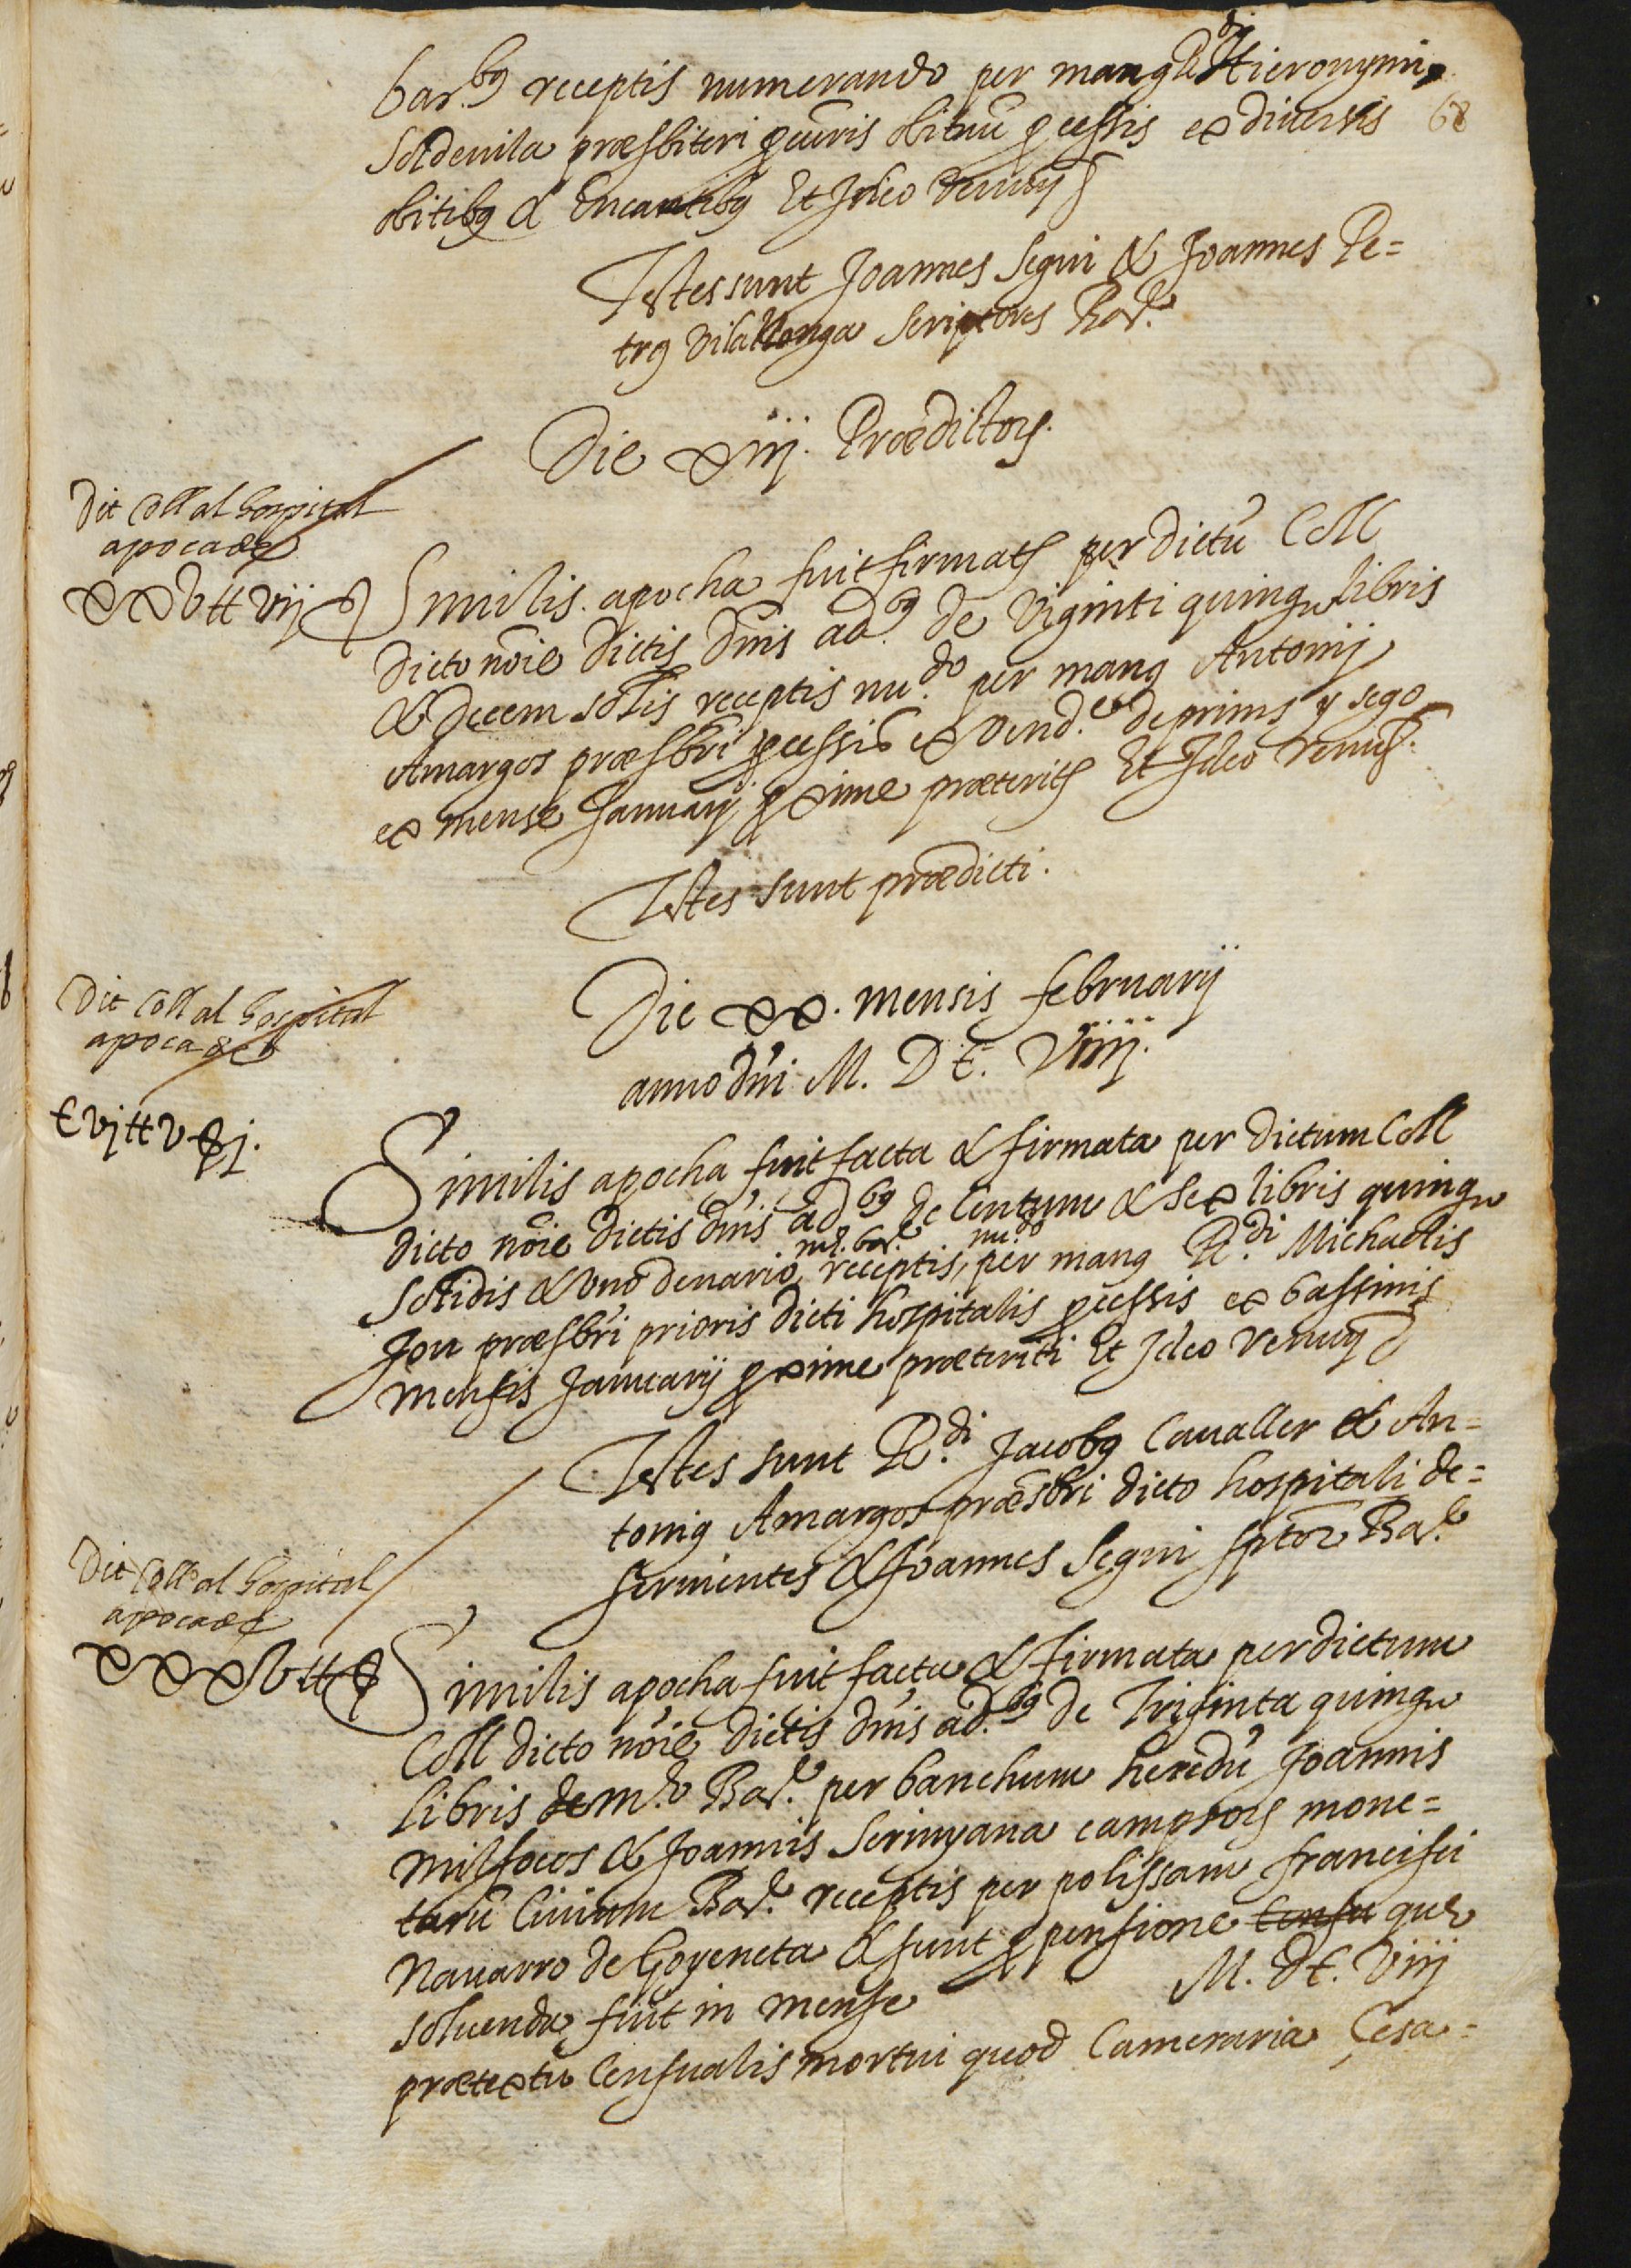 bar.bꝰ receptis numerando per manꝰ R.di Hieronymi
68
Soldevila præsbiteri procuris obituũ processis ex diversis
obitibꝰ & Encantibꝰ Et Ideo Renuny
Testes sunt Joannes Segui & Joannes Pe=
trꝰ Vilallonga Scriptores Bar.e
Die xiij. Prædictoꝝ.
Dit Coll al hospital
apoca de
xxv ll vij
Similis apocha fuit firmata per dictũ Coll
dicto nõie dictis dñis ad.bꝰ de Viginti quinqꝫ libris
& decem solis receptis nu.do per manꝰ Antonij
Amargos præsbri processis ex Vend.e de prims y sego
ex mense Januarij proxime præterito Et Ideo Renuꝰ.
Testes sunt prædicti.
Dit Coll al hospital
apoca de
Die xx. mensis februarij
anno dñi M. D C. Viiij.
C vj ll v ß j.
Similis apocha fuit facta & firmata per dictum Coll
dicto nõie dictis dñis ad.bꝰ de Centum & sex libris quinqꝫ
solidis & uno denario, mt. bar.e receptis, nu.do per manꝰ R.di Michaelis
Jou præsbri prioris dicti hospitalis processis ex bassinis
mensis Januarij proxime præteriti Et Ideo Renuny
Testes sunt R.di Jacobꝰ Cavaller & An=
toniꝰ Amargos præsbri dicto hospitali de=
servientes & Joannes Segui sptor Bar.e
Dit Coll al hospital
apoca de
xxxv ll
Similis apocha fuit facta & firmata per dictum
Coll dicto nõie dictis dñis ad.bꝰ de Triginta quinqꝫ
libris de m.ta Bar.e per banchum heredũ Joannis
milsocos & Joannis Serinyana campsoꝝ mone=
tarũ Civium Bar.e receptis per polissam francisci
Navarro de Goyeneta & sunt pro pensione censu quæ
solvenda fuit in mense M. DC. Viiij
prætextu Censualis mortui quod Cameraria Cesa=